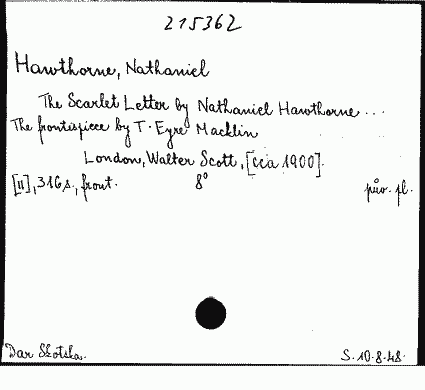 215362
Hawthorne, Nathaniel
The Scarlet Letter by Nathaniel Hawthorne ...
The frontispiece by T. Eyre Macklin
London, Walter Scott, [cca 1900].
[II], 316 s., front. 8° pův. pl.
Dar Skotska. S. 10.8.48.